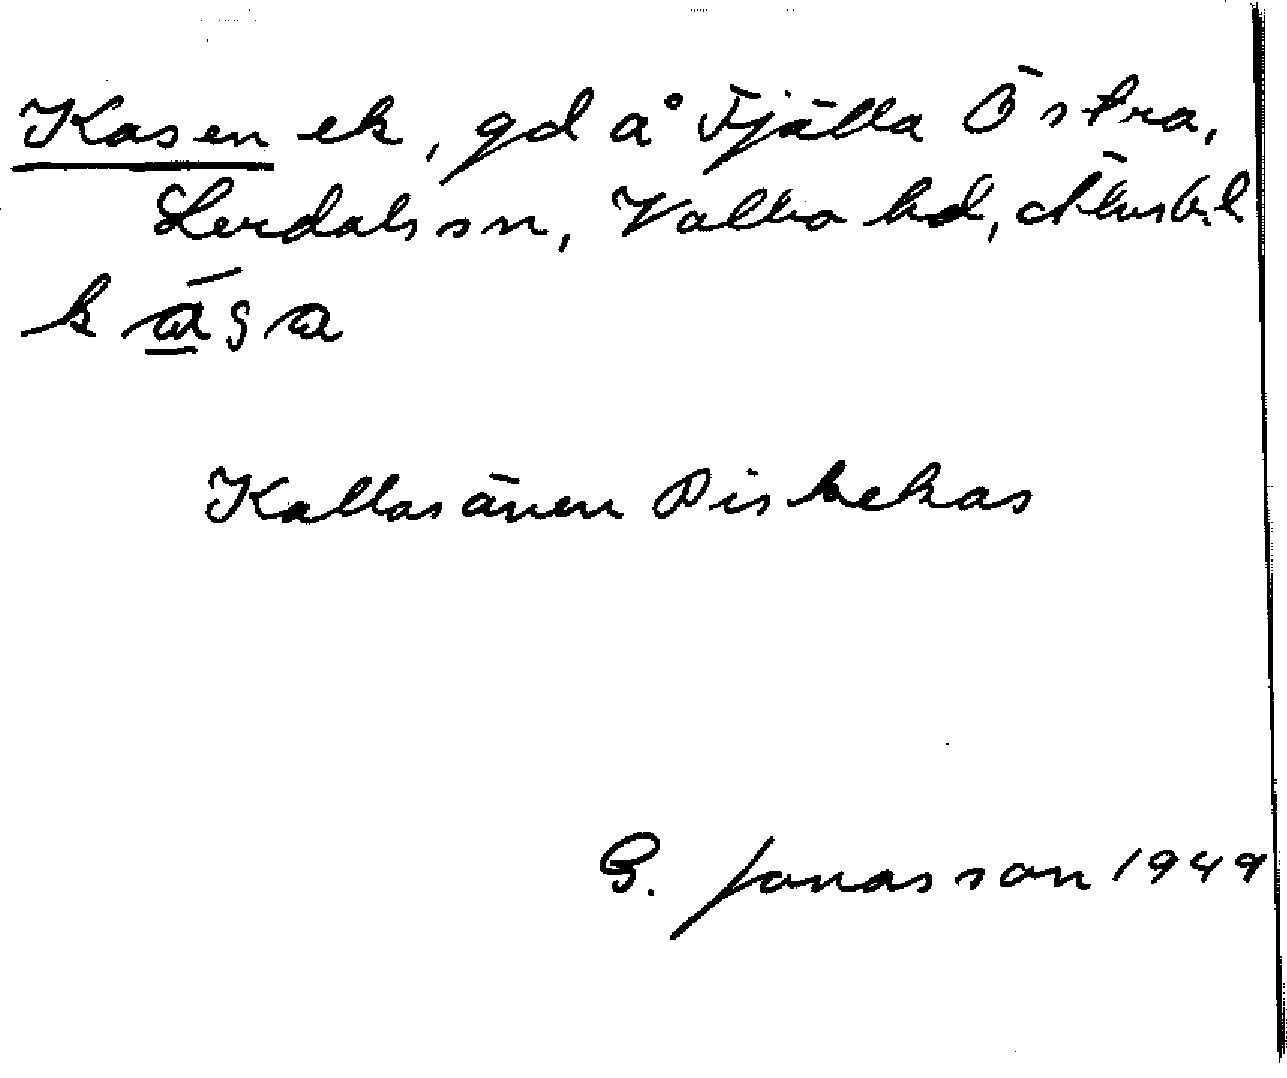 Kasen ek, gd å Fjälla Östra,
Lerdals sn, Valbo hd, Älvsb. l
Kallas även Diskekas
G. Jonasson 1949